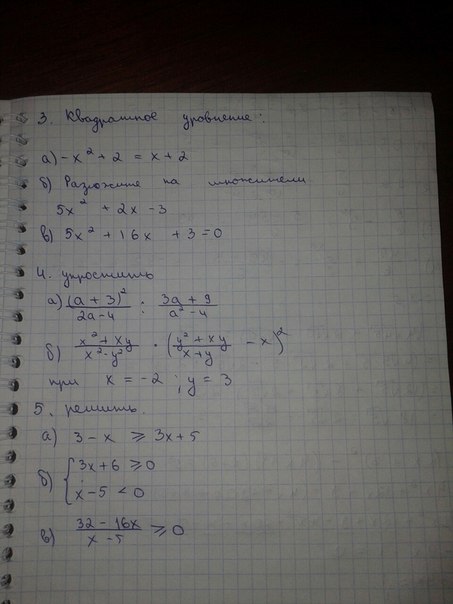 3. Квадратное уровнение:
а) -x² + 2 = x + 2
б) Разложите на множители
5x² + 2x - 3
в) 5x² + 16x + 3 = 0
4. упростить
а) (a + 3)² / 2a - 4 : 3a + 9 / a² - 4
б) x² + xy / x² - y² · (y² + xy / x + y - x)²
при x = -2 ; y = 3
5. решить.
а) 3 - x ⩾ 3x + 5
б) { 3x + 6 ⩾ 0
x - 5 < 0
в) 32 - 16x / x - 5 ⩾ 0